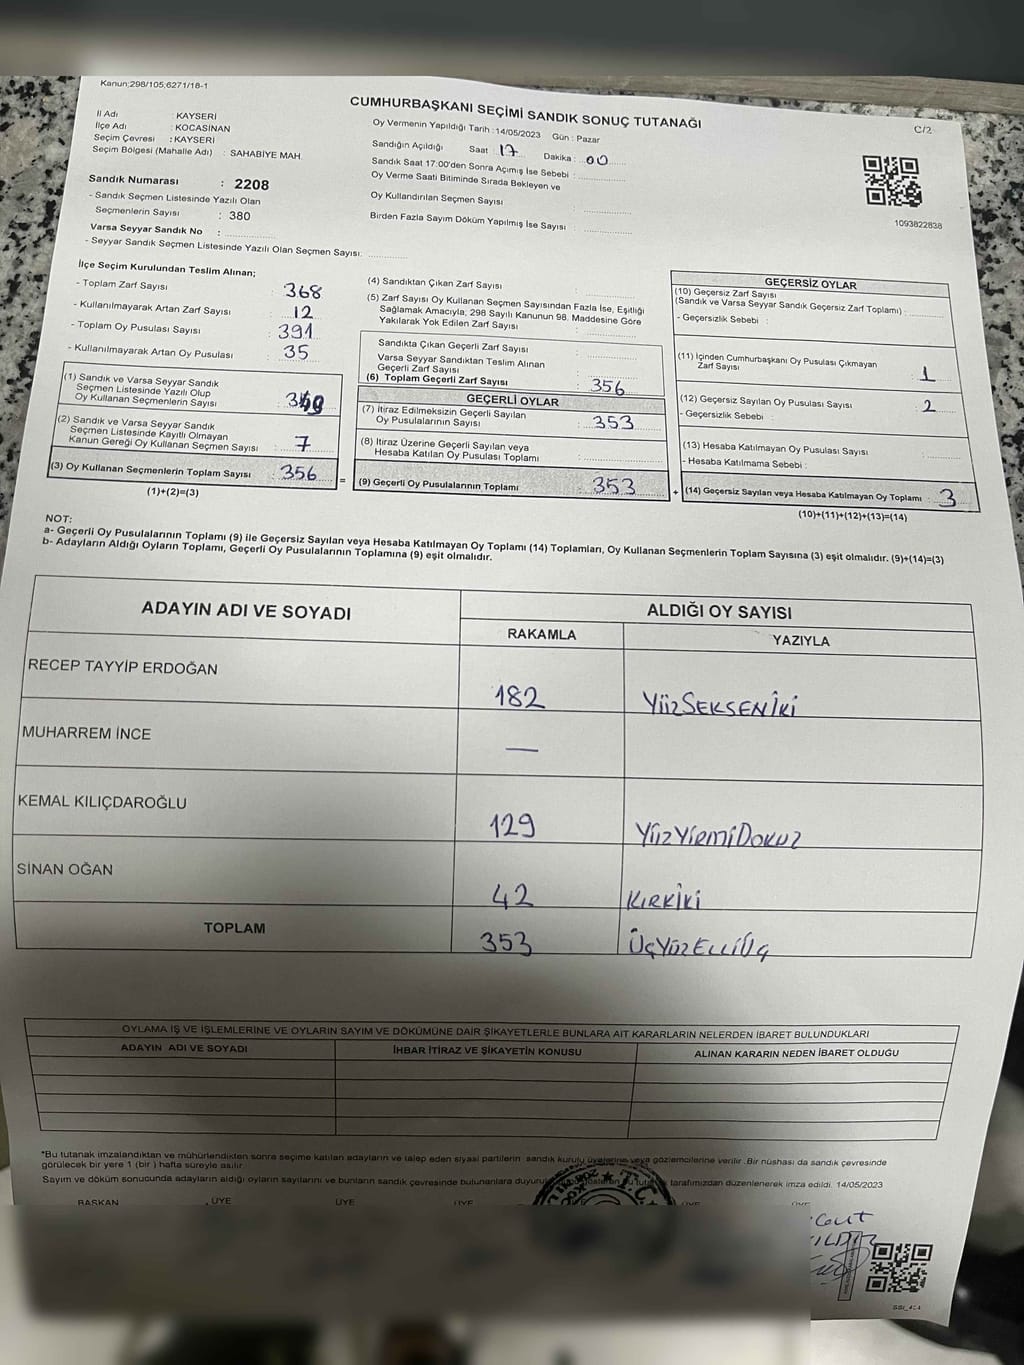 Kanun;298/105;6271/18-1
CUMHURBAŞKANI SEÇİMİ SANDIK SONUÇ TUTANAĞI
C/2
İl Adı : KAYSERİ
İlçe Adı : KOCASİNAN
Seçim Çevresi : KAYSERİ
Seçim Bölgesi (Mahalle Adı) : SAHABİYE MAH.
Sandık Numarası : 2208
- Sandık Seçmen Listesinde Yazılı Olan
Seçmenlerin Sayısı : 380
Varsa Seyyar Sandık No :
- Seyyar Sandık Seçmen Listesinde Yazılı Olan Seçmen Sayısı:
Oy Vermenin Yapıldığı Tarih : 14/05/2023 Gün : Pazar
Sandığın Açıldığı Saat : 17 Dakika : 00
Sandık Saat 17:00'den Sonra Açımış İse Sebebi :
Oy Verme Saati Bitiminde Sırada Bekleyen ve
Oy Kullandırılan Seçmen Sayısı :
Birden Fazla Sayım Döküm Yapılmış İse Sayısı :
1093822838
İlçe Seçim Kurulundan Teslim Alınan;
- Toplam Zarf Sayısı : 368
- Kullanılmayarak Artan Zarf Sayısı : 12
- Toplam Oy Pusulası Sayısı : 391
- Kullanılmayarak Artan Oy Pusulası : 35
(1) Sandık ve Varsa Seyyar Sandık
Seçmen Listesinde Yazılı Olup
Oy Kullanan Seçmenlerin Sayısı :
(2) Sandık ve Varsa Seyyar Sandık
Seçmen Listesinde Kayıtlı Olmayan
Kanun Gereği Oy Kullanan Seçmen Sayısı : 7
(3) Oy Kullanan Seçmenlerin Toplam Sayısı : 356
(1)+(2)=(3)
=
(4) Sandıktan Çıkan Zarf Sayısı :
(5) Zarf Sayısı Oy Kullanan Seçmen Sayısından Fazla İse, Eşitliği
Sağlamak Amacıyla, 298 Sayılı Kanunun 98. Maddesine Göre
Yakılarak Yok Edilen Zarf Sayısı :
Sandıkta Çıkan Geçerli Zarf Sayısı :
Varsa Seyyar Sandıktan Teslim Alınan
Geçerli Zarf Sayısı :
(6) Toplam Geçerli Zarf Sayısı : 356
GEÇERLİ OYLAR
(7) İtiraz Edilmeksizin Geçerli Sayılan
Oy Pusulalarının Sayısı : 353
(8) İtiraz Üzerine Geçerli Sayılan veya
Hesaba Katılan Oy Pusulası Toplamı :
(9) Geçerli Oy Pusulalarının Toplamı : 353
+
GEÇERSİZ OYLAR
(10) Geçersiz Zarf Sayısı
(Sandık ve Varsa Seyyar Sandık Geçersiz Zarf Toplamı) :
- Geçersizlik Sebebi :
(11) İçinden Cumhurbaşkanı Oy Pusulası Çıkmayan
Zarf Sayısı : 1
(12) Geçersiz Sayılan Oy Pusulası Sayısı : 2
- Geçersizlik Sebebi :
(13) Hesaba Katılmayan Oy Pusulası Sayısı :
- Hesaba Katılmama Sebebi :
(14) Geçersiz Sayılan veya Hesaba Katılmayan Oy Toplamı : 3
(10)+(11)+(12)+(13)=(14)
NOT:
a- Geçerli Oy Pusulalarının Toplamı (9) ile Geçersiz Sayılan veya Hesaba Katılmayan Oy Toplamı (14) Toplamları, Oy Kullanan Seçmenlerin Toplam Sayısına (3) eşit olmalıdır. (9)+(14)=(3)
b- Adayların Aldığı Oyların Toplamı, Geçerli Oy Pusulalarının Toplamına (9) eşit olmalıdır.
ADAYIN ADI VE SOYADI ALDIĞI OY SAYISI
RAKAMLA YAZIYLA
RECEP TAYYİP ERDOĞAN 182 YüzSEKSENİKİ
MUHARREM İNCE —
KEMAL KILIÇDAROĞLU 129 YüzYirmiDokuz
SİNAN OĞAN 42 KIRKİKİ
TOPLAM 353 ÜÇYüzELLİÜÇ
OYLAMA İŞ VE İŞLEMLERİNE VE OYLARIN SAYIM VE DÖKÜMÜNE DAİR ŞİKAYETLERLE BUNLARA AİT KARARLARIN NELERDEN İBARET BULUNDUKLARI
ADAYIN ADI VE SOYADI İHBAR İTİRAZ VE ŞİKAYETİN KONUSU ALINAN KARARIN NEDEN İBARET OLDUĞU
*Bu tutanak imzalandıktan ve mühürlendikten sonra seçime katılan adayların ve talep eden siyasi partilerin sandık kurulu üyelerine veya gözlemcilerine verilir .Bir nüshası da sandık çevresinde
görülecek bir yere 1 (bir ) hafta süreyle asılır.
Sayım ve döküm sonucunda adayların aldığı oyların sayılarını ve bunların sandık çevresinde bulunanlara tarafımızdan düzenlenerek imza edildi. 14/05/2023
BAŞKAN ÜYE ÜYE ÜYE ÜYE ÜYE
T.C.